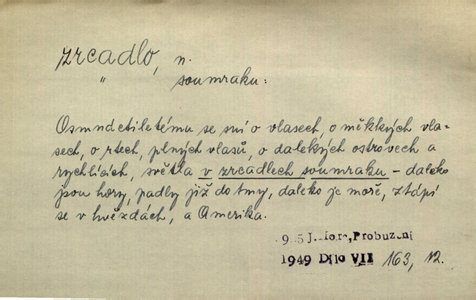 zrcadlo, n.
" soumraku:
Osmnáctiletému se sní o vlasech, o měkkých vla-
sech, o rtech, plných vlasů, o dalekých ostrovech a
rychlících, světla v zrcadlech soumraku – daleko
jsou hory, padly již do tmy, daleko je moře, ztápí
se v hvězdách, a Amerika.
Probuzení
1949 Dílo VII 163, 12.